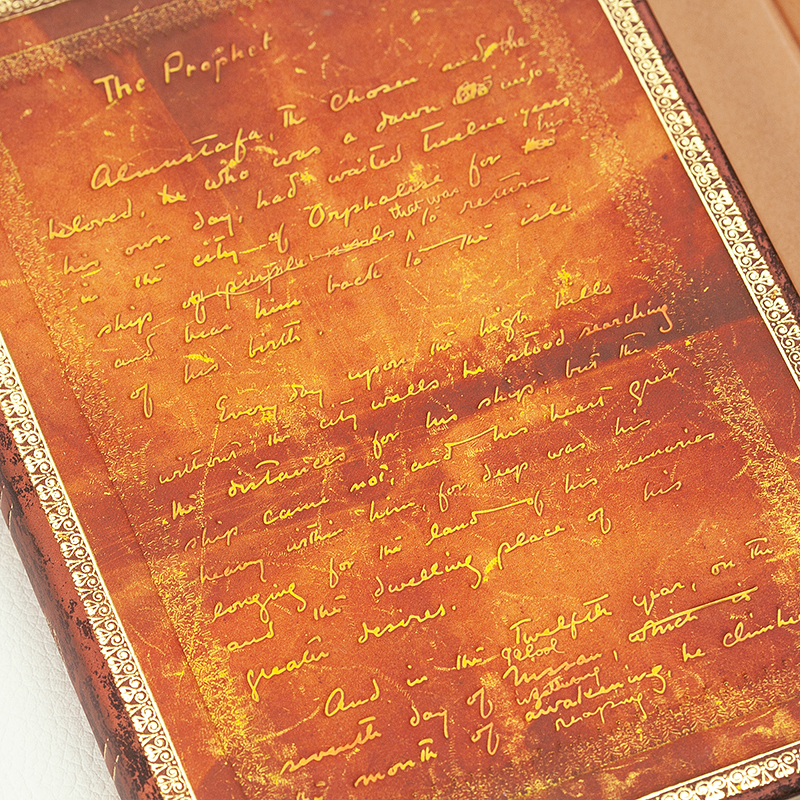 The Prophet
Almustafa, the chosen and the
beloved, he who was a dawn unto
his own day, had waited twelve years
in the city of Orphalese for his
ship of purple sails that was to return
and bear him back to the isle
of his birth.
Every day upon the high hills
without the city walls he stood searching
the distances for his ship, but the
ship came not, and his heart grew
heavy within him, for deep was his
longing for the land of his memories
and the dwelling place of his
greater desires.
And in the twelfth year, on the
seventh day of Nissan, which is
the month of awakening, he climbed
reaping